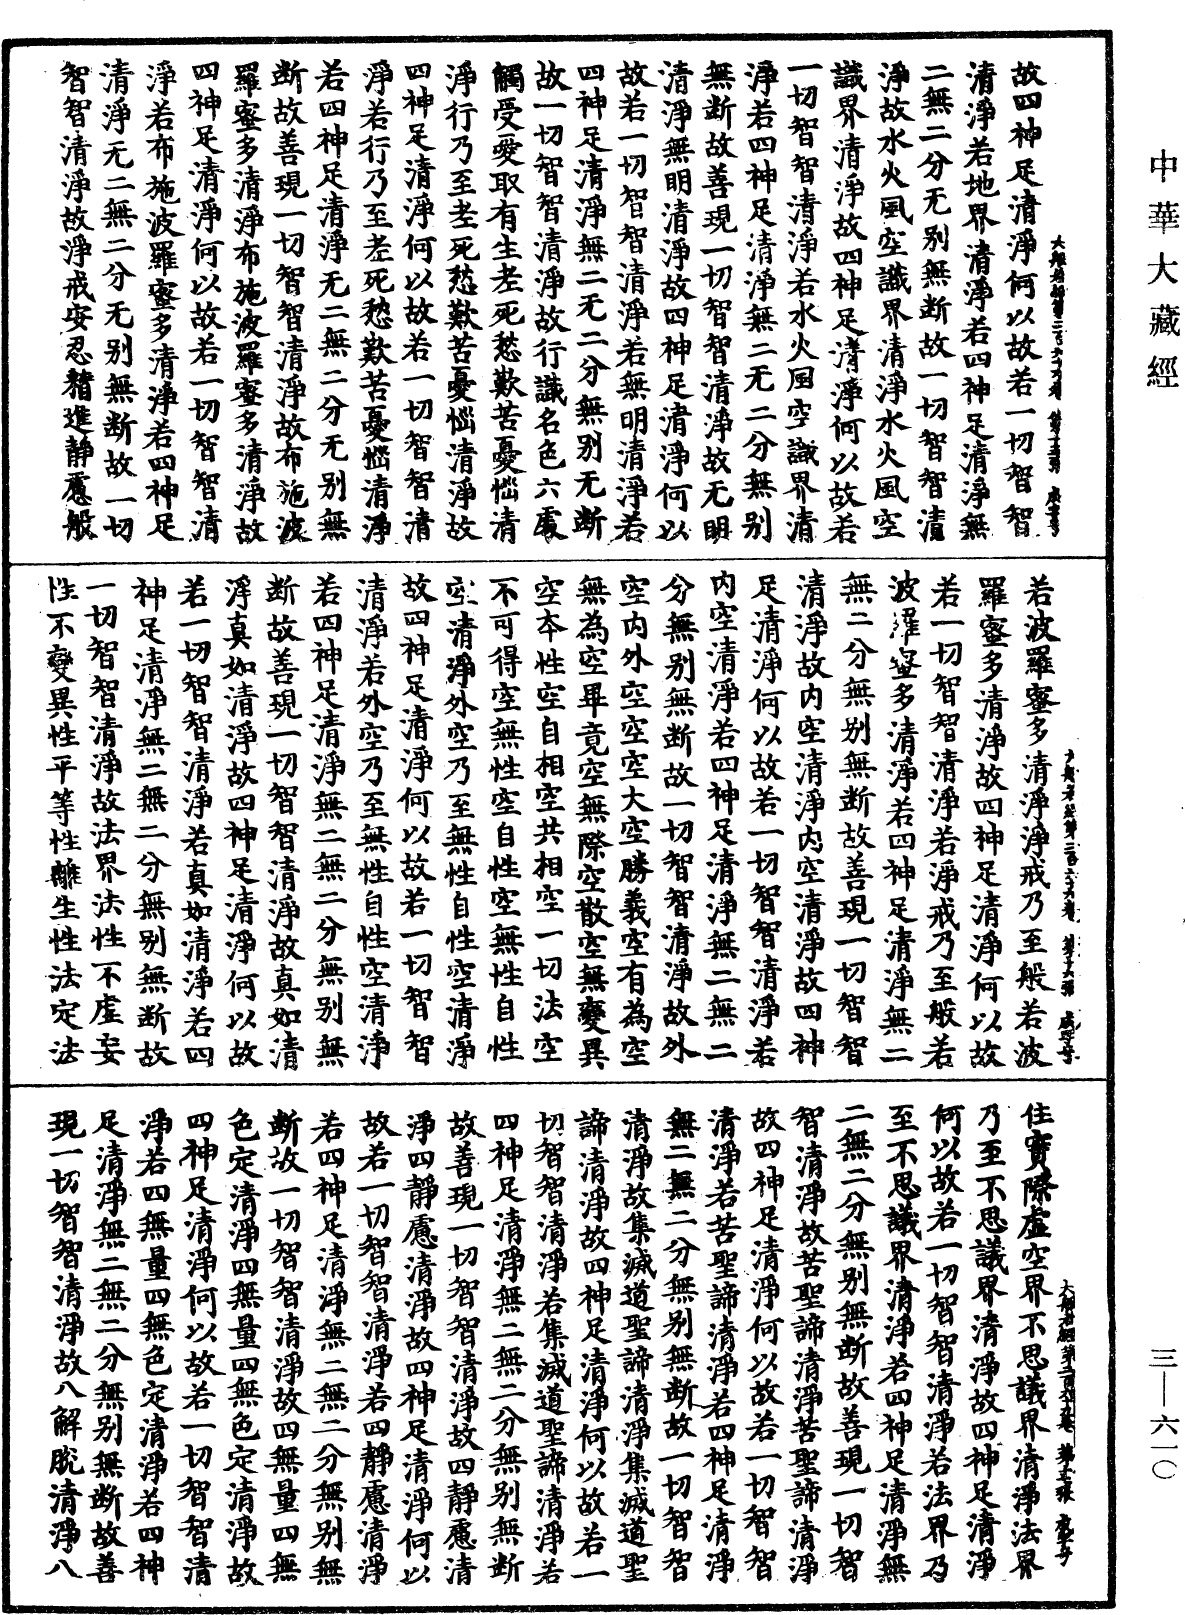 中華大藏經
故四神足清淨何以故若一切智智
清淨若地界清淨若四神足清淨無
二無二分无别無断故一切智智清
淨故水火風空識界清淨水火風空
識界清淨故四神足清淨何以故若
一切智智清淨若水火風空識界清
淨若四神足清淨無二无二分無别
無断故善現一切智智清淨故无明
清淨無明清淨故四神足清淨何以
故若一切智智清淨若無明清淨若
四神足清淨無二无二分無别无断
故一切智智清淨故行識名色六處
觸受愛取有生老死愁歎苦憂惱清
淨行乃至老死愁歎苦憂惱清淨故
四神足清淨何以故若一切智智清
淨若行乃至老死愁歎苦憂惱清淨
若四神足清淨无二無二分无别無
断故善現一切智智清淨故布施波
羅蜜多清淨布施波羅蜜多清淨故
四神足清淨何以故若一切智智清
淨若布施波羅蜜多清淨若四神足
清淨无二無二分无别無断故一切
智智清淨故淨戒安忍精進靜慮般
若波羅蜜多清淨淨戒乃至般若波
羅蜜多清淨故四神足清淨何以故
若一切智智清淨若淨戒乃至般若
波羅蜜多清淨若四神足清淨無二
無二分無别無断故善現一切智智
清淨故内空清淨内空清淨故四神
足清淨何以故若一切智智清淨若
内空清淨若四神足清淨無二無二
分無别無断故一切智智清淨故外
空内外空空空大空勝義空有為空
無為空畢竟空無際空散空無變異
空本性空自相空共相空一切法空
不可得空無性空自性空無性自性
空清淨外空乃至無性自性空清淨
故四神足清淨何以故若一切智智
清淨若外空乃至無性自性空清淨
若四神足清淨無二無二分無别無
断故善現一切智智清淨故真如清
淨真如清淨故四神足清淨何以故
若一切智智清淨若真如清淨若四
神足清淨無二無二分無别無断故
一切智智清淨故法界法性不虛妄
性不變異性平等性離生性法定法
住實際虛空界不思議界清淨法界
乃至不思議界清淨故四神足清淨
何以故若一切智智清淨若法界乃
至不思議界清淨若四神足清淨無
二無二分無别無断故善現一切智
智清淨故苦聖諦清淨苦聖諦清淨
故四神足清淨何以故若一切智智
清淨若苦聖諦清淨若四神足清淨
無二無二分無别無断故一切智智
清淨故集滅道聖諦清淨集滅道聖
諦清淨故四神足清淨何以故若一
切智智清淨若集滅道聖諦清淨若
四神足清淨無二無二分無别無断
故善現一切智智清淨故四靜慮清
淨四靜慮清淨故四神足清淨何以
故若一切智智清淨若四靜慮清淨
若四神足清淨無二無二分無别無
断故一切智智清淨故四無量四無
色定清淨四無量四無色定清淨故
四神足清淨何以故若一切智智清
淨若四無量四無色定清淨若四神
足清淨無二無二分無别無断故善
現一切智智清淨故八解脫清淨八
三—六一〇